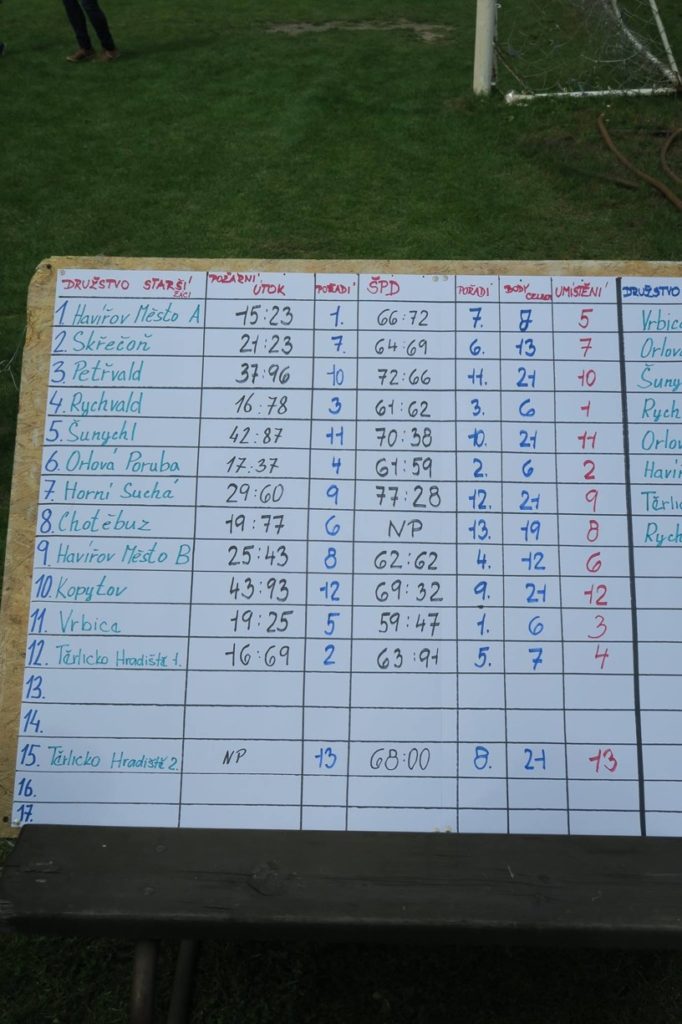 DRUŽSTVO STARŠÍ ŽÁCI POŽÁRNÍ ÚTOK POŘADÍ ŠPD POŘADÍ BODY CELKEM UMÍSTĚNÍ DRUŽSTVO
1. Havířov Město A 15:23 1. 66:72 7. 8 5 Vrbic
2. Skřečoň 21:23 7. 64:69 6. 13 7 Orlov
3. Petřvald 37:96 10 72:66 11. 21 10 Šuny
4. Rychvald 16.78 3 61:62 3. 6 1 Rych
5. Šunychl 42:87 11 70:38 10. 21 11 Orlov
6. Orlová Poruba 17.37 4 61:59 2. 6 2 Haví
7. Horní Suchá 29:60 9 77:28 12. 21 9 Těrlic
8. Chotěbuz 19:77 6 NP 13. 19 8 Rych
9. Havířov Město B 25:43 8 62:62 4. 12 6
10. Kopytov 43:93 12 69:32 9. 21 12
11. Vrbica 19:25 5 59:47 1. 6 3
12. Těrlicko Hradiště 1. 16:69 2 63:91 5. 7 4
13.
14.
15. Těrlicko Hradiště 2. NP 13 68:00 8. 21 13
16.
17.